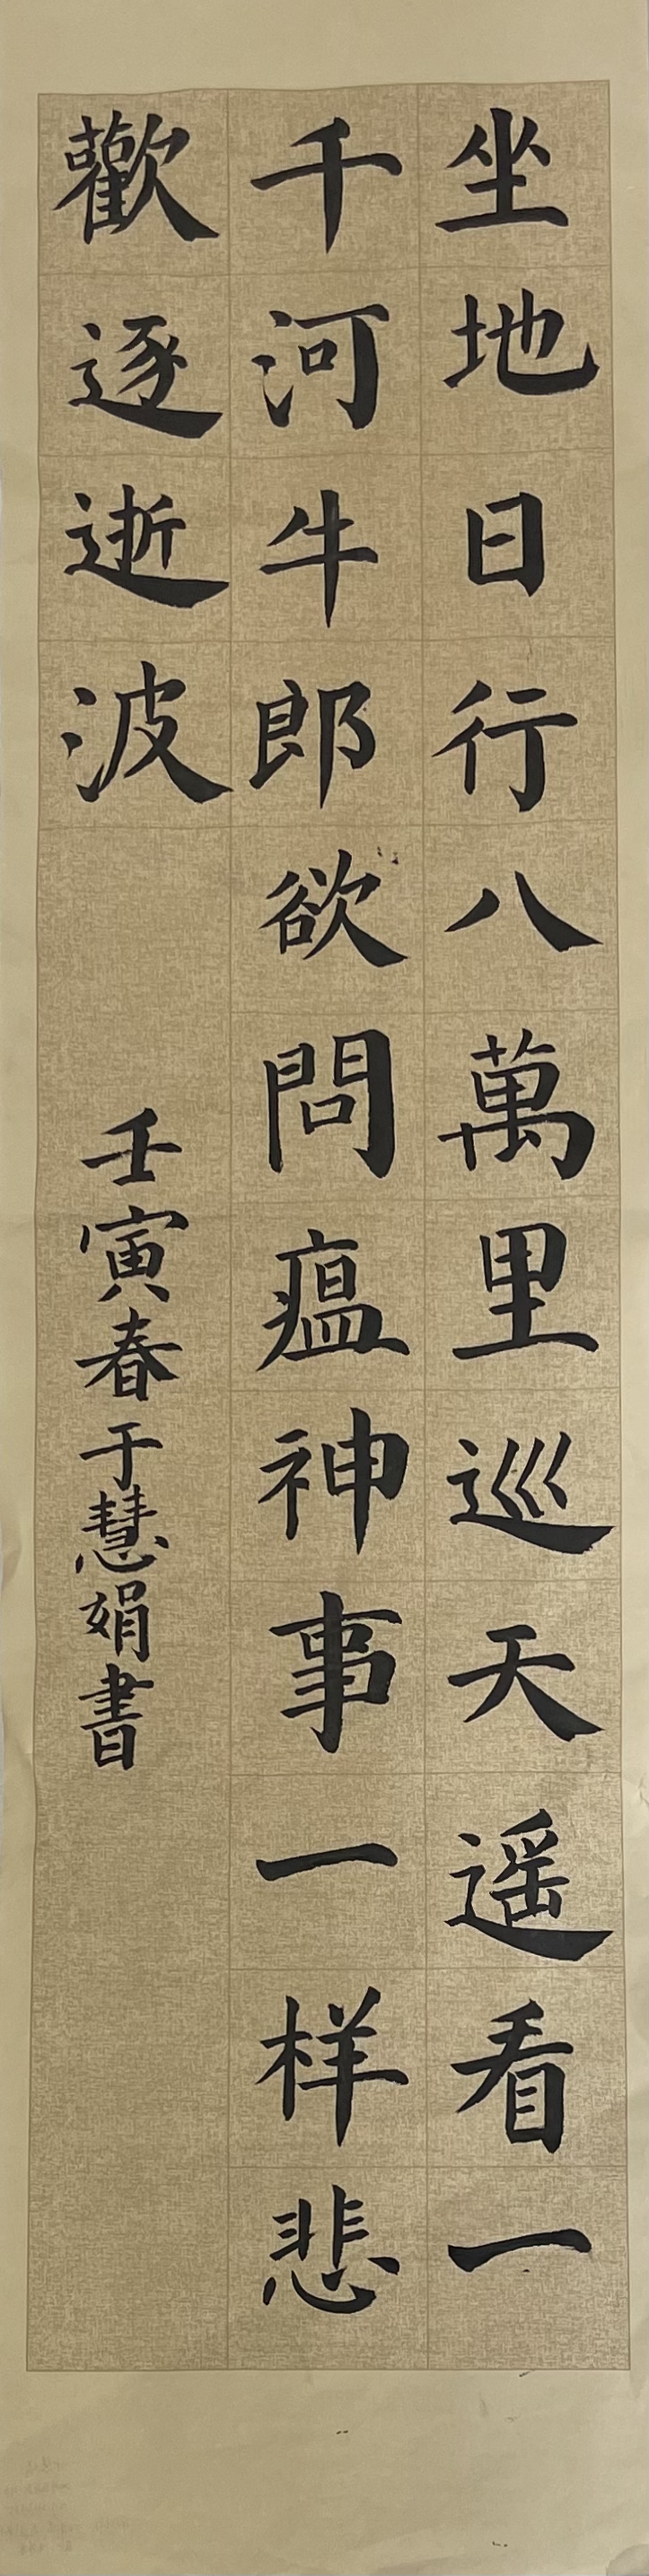 坐地日行八萬里巡天遥看一
千河牛郎欲問瘟神事一样悲
歡逐逝波
壬寅春于慧娟書